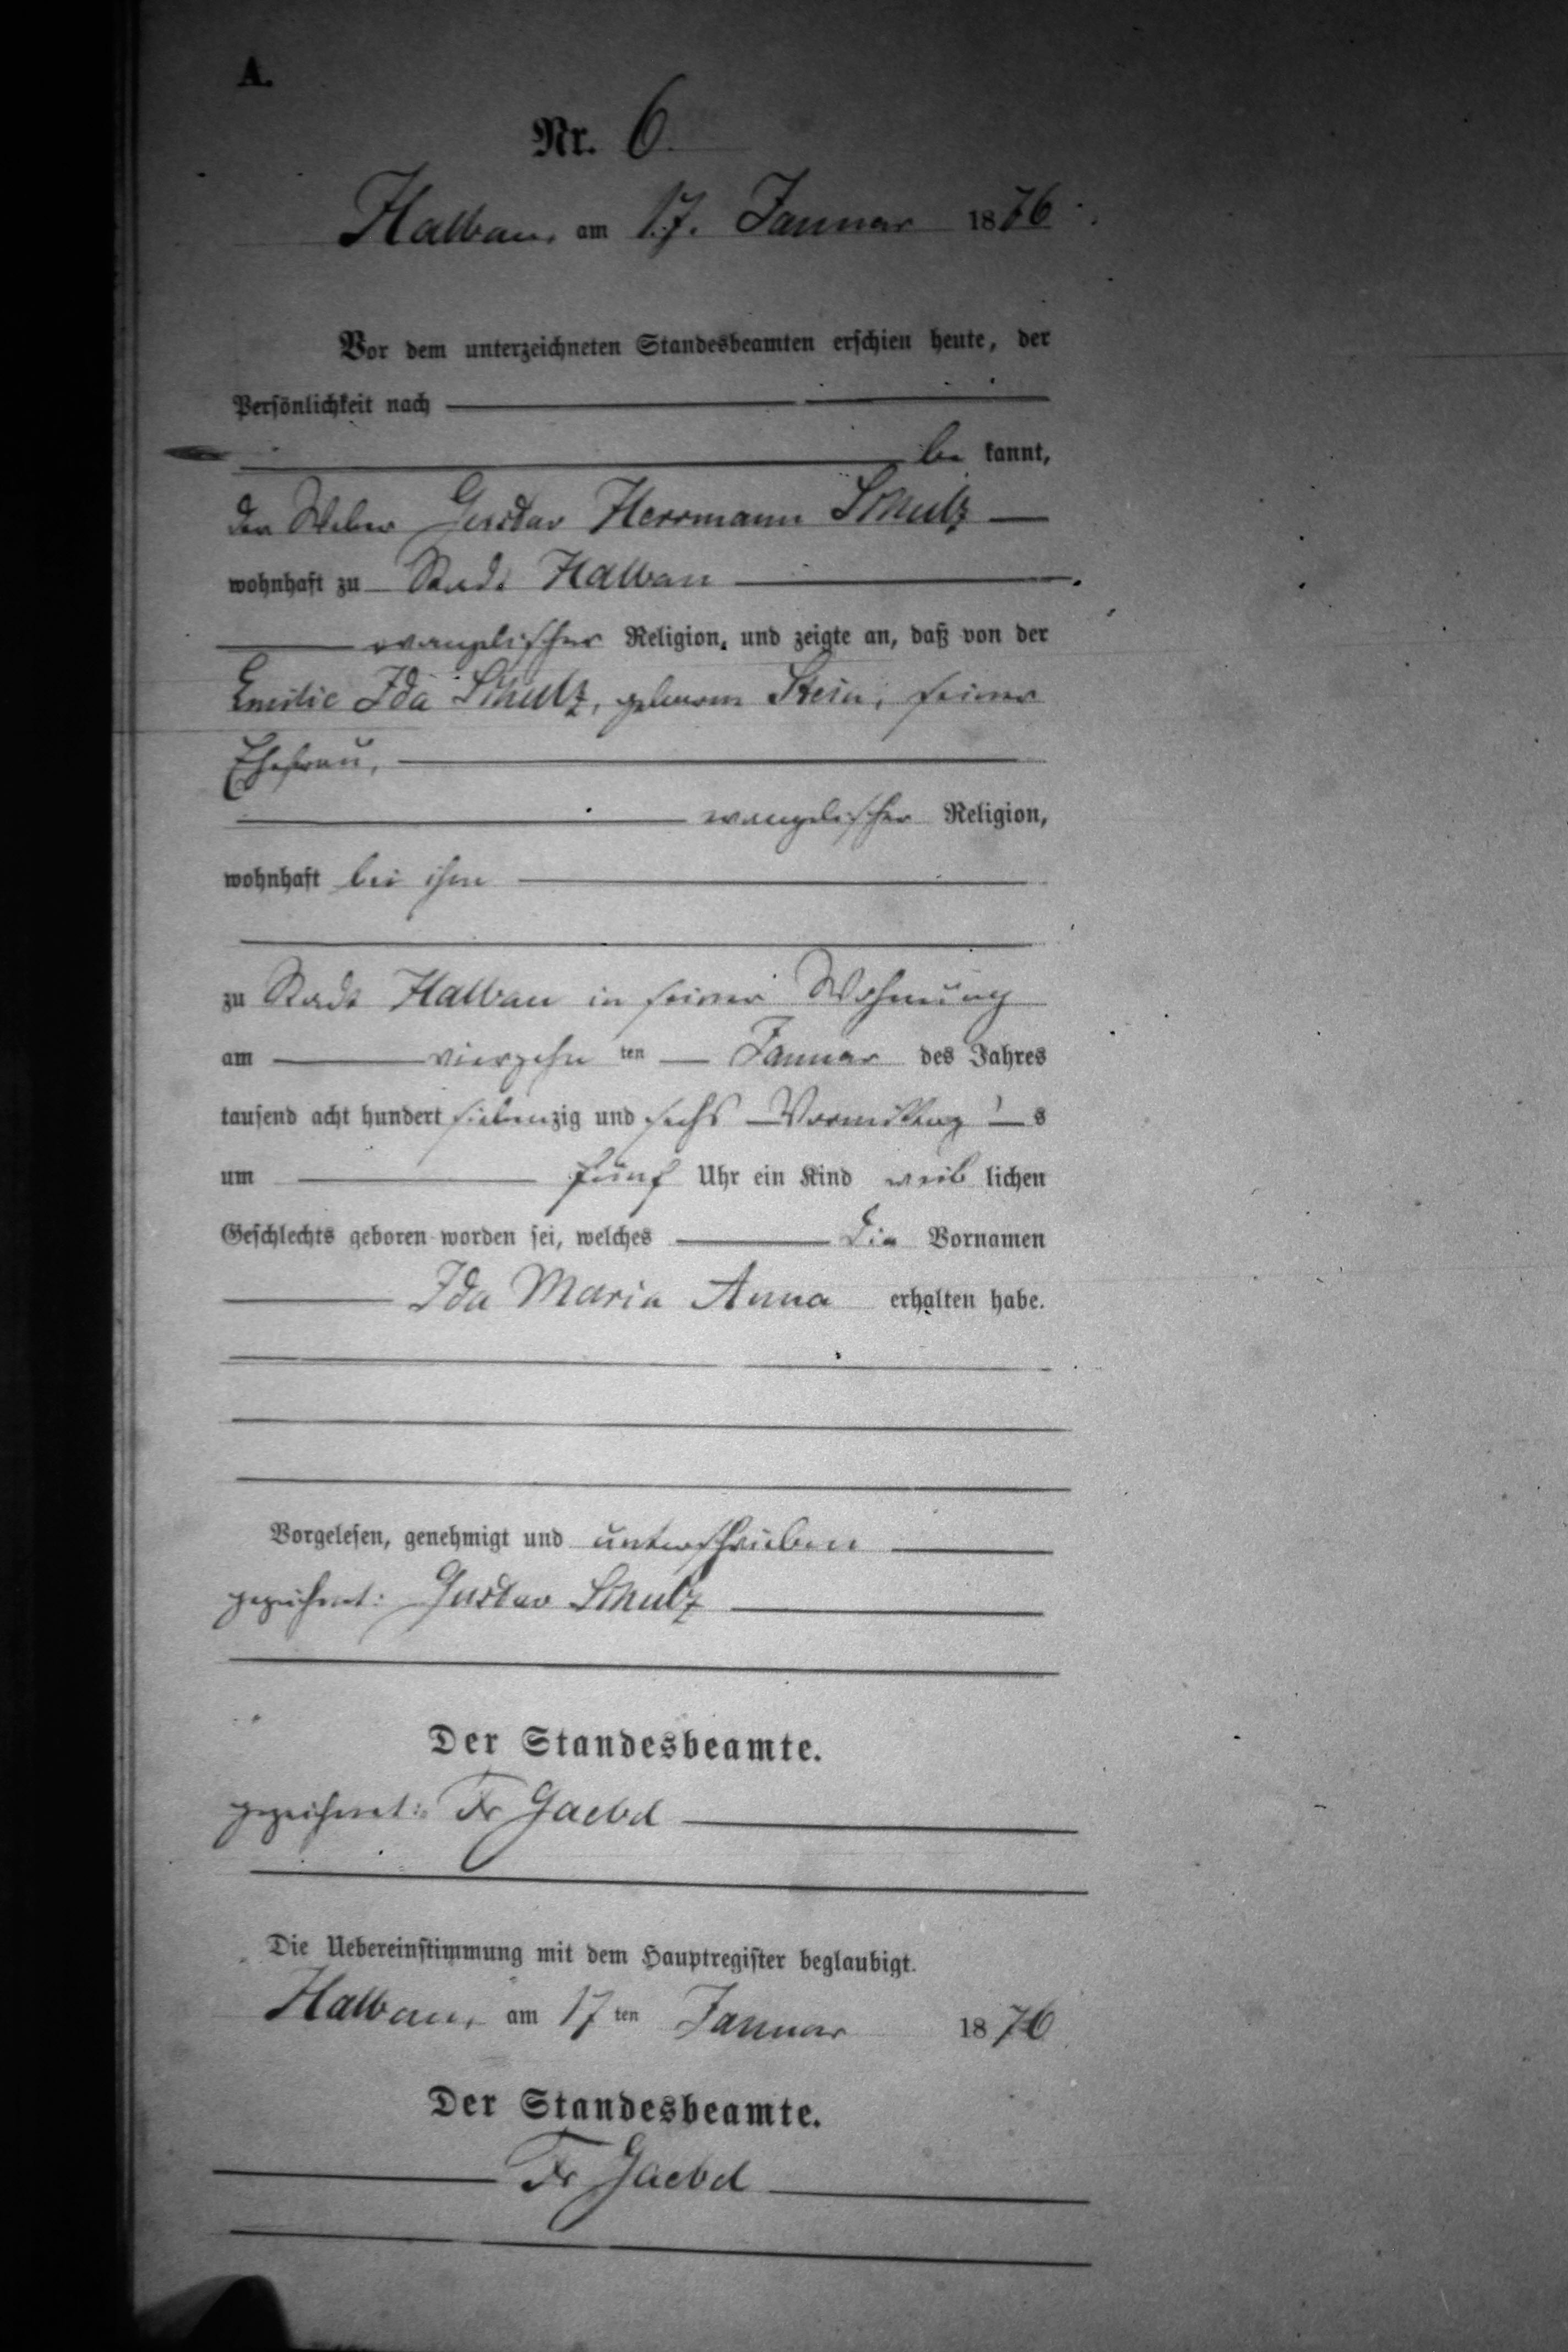 A.
Nr. 6.
Halbau, am 17. Januar 1876.
Vor dem unterzeichneten Standesbeamten erschien heute, der
Persönlichkeit nach
be kannt,
der Weber Gustav Herrmann Schulz
wohnhaft zu Stadt Halbau
evangelischer Religion, und zeigte an, daß von der
Emilie Ida Schulz, geborene Stein, seiner
Ehefrau,
evangelischer Religion,
wohnhaft bei ihm
zu Stadt Halbau in seiner Wohnung
am vierzehn ten Januar des Jahres
tausend acht hundert siebenzig und sechs Vormittag s
um fünf Uhr ein Kind weib lichen
Geschlechts geboren worden sei, welches die Vornamen
Ida Maria Anna erhalten habe.
Vorgelesen, genehmigt und unterschrieben
gezeichnet: Gustav Schulz
Der Standesbeamte.
gezeichnet: Fr
Die Uebereinstimmung mit dem Hauptregister beglaubigt.
Halbau, am 17 ten Januar 1876
Der Standesbeamte.
Fr